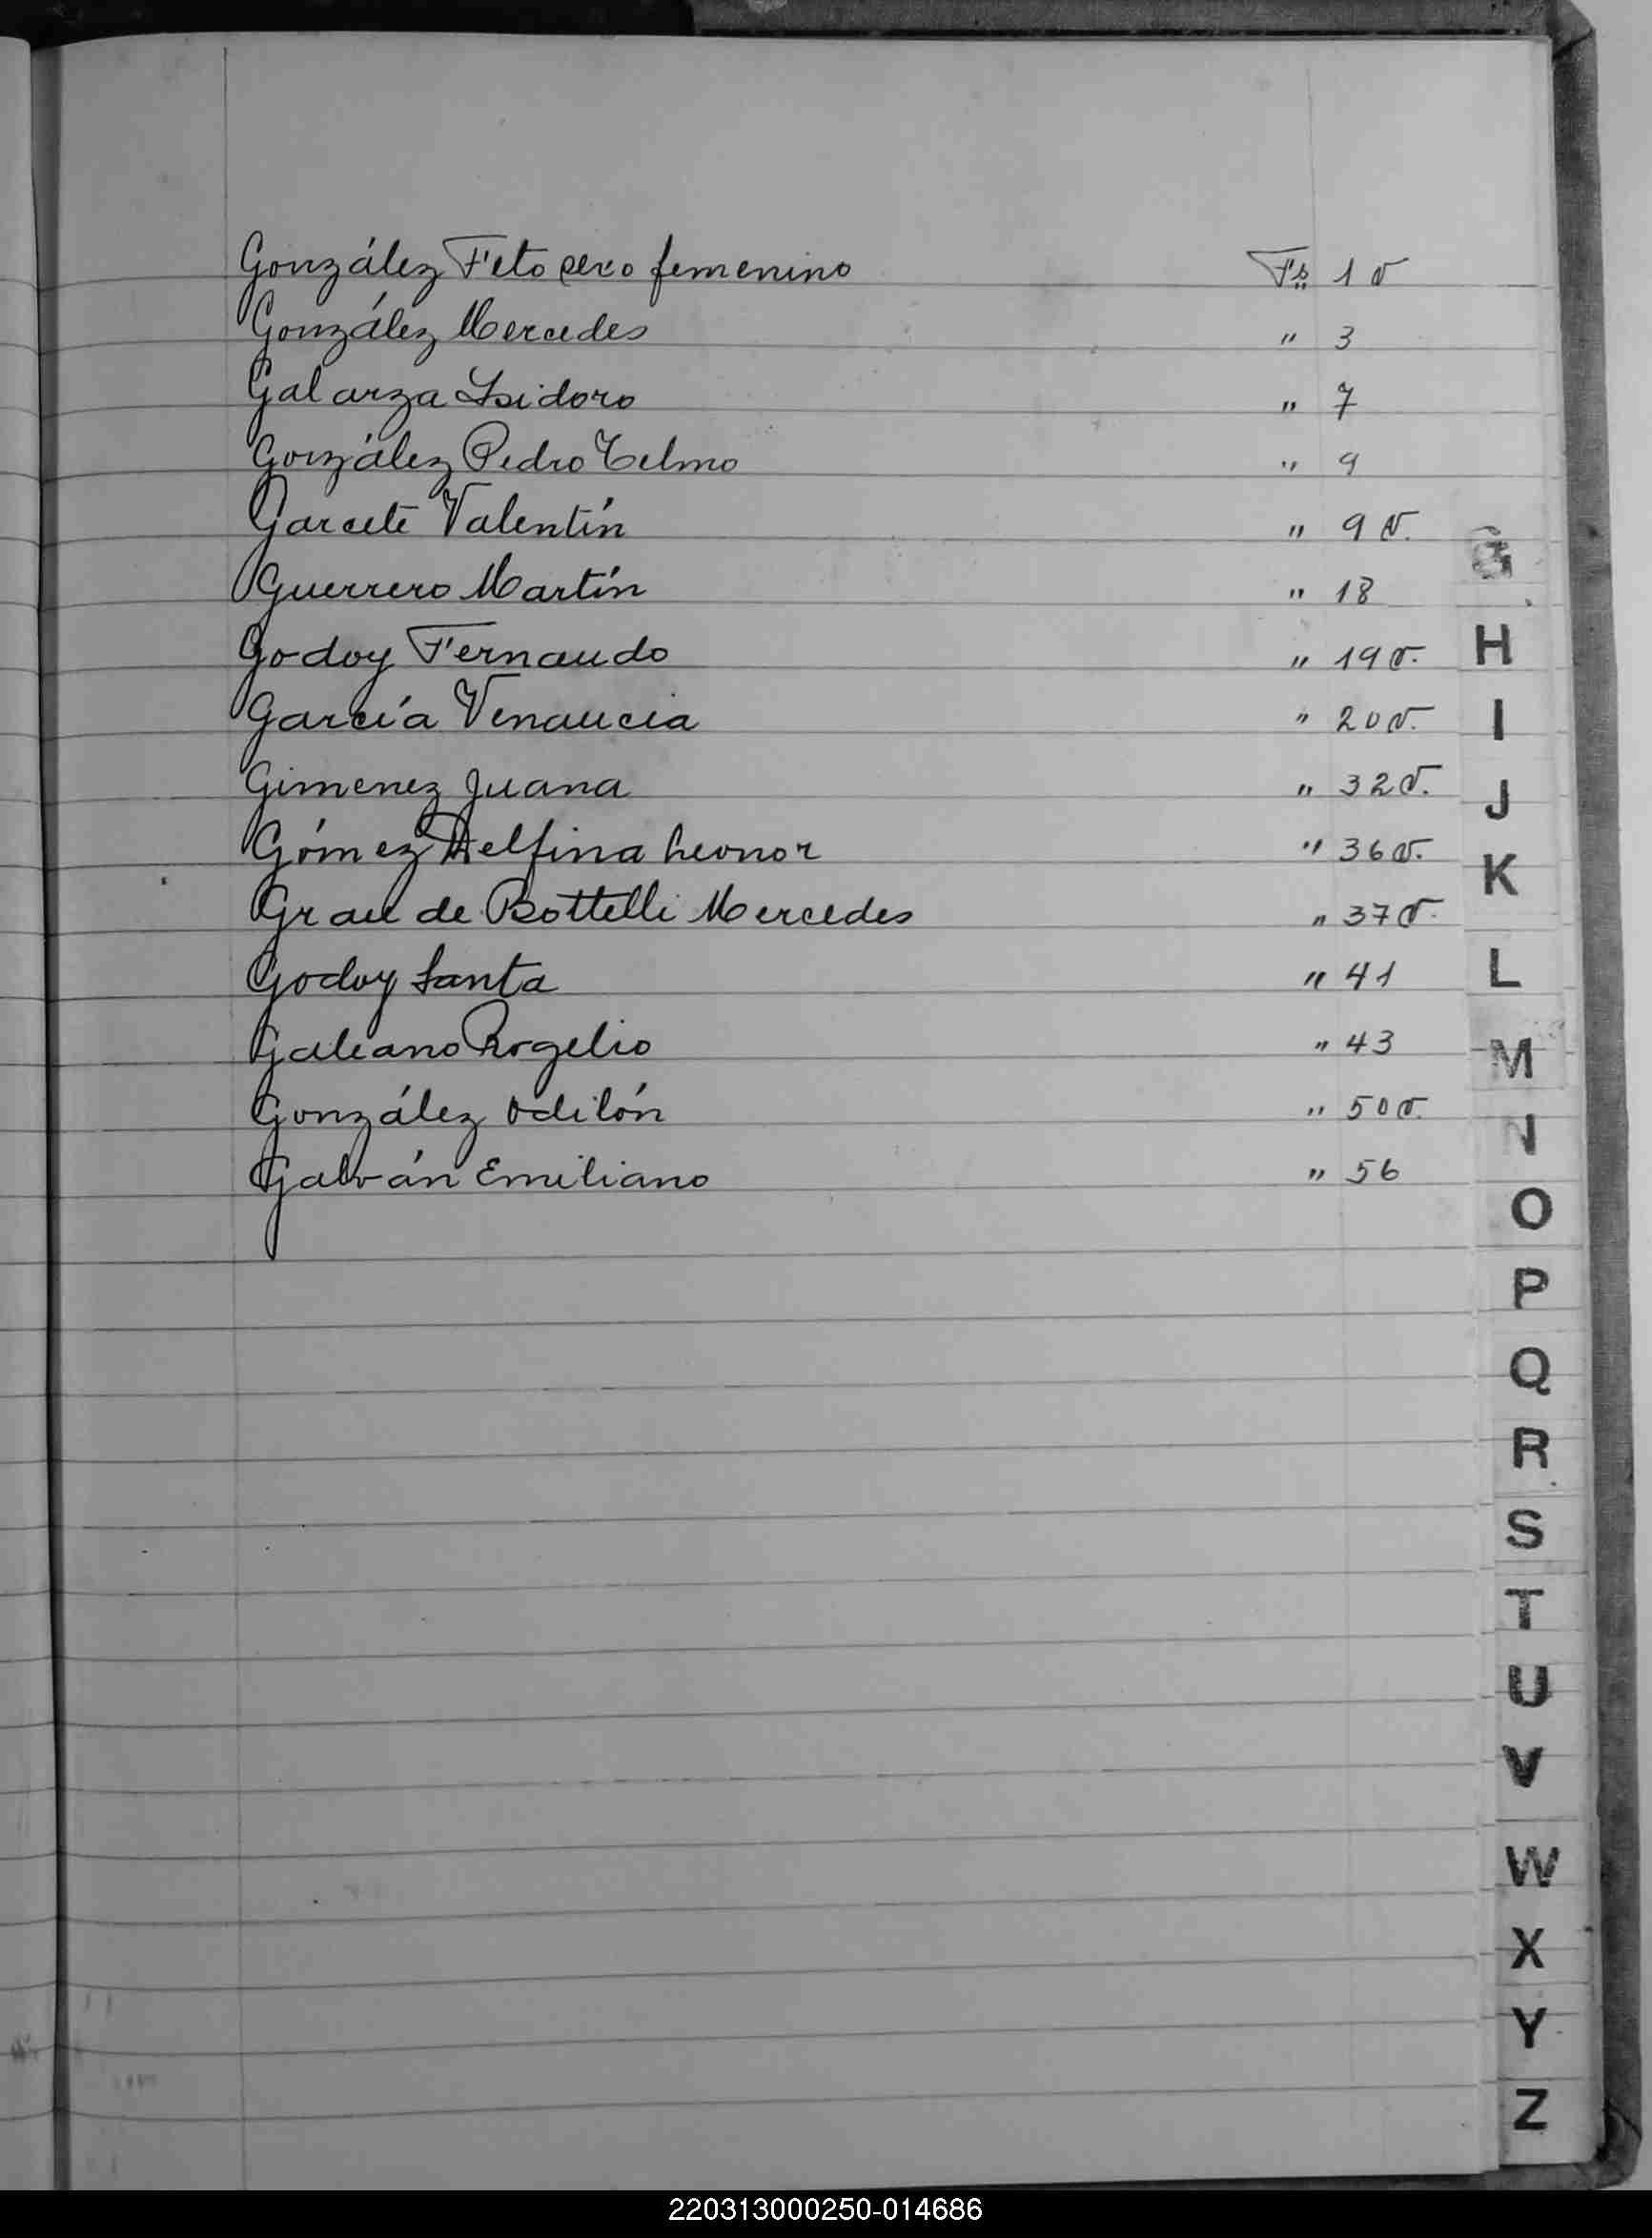 González Feto sexo femenino Fs 1 v
González Mercedes " 3
Galarza Isidoro " 7
González Pedro Telmo " 9
Garcete Valentín " 9 v.
Guerrero Martín " 18
Godoy Fernando " 19 v.
García Venancia " 20 v.
Gimenez Juana " 32 v.
Gómez Delfina Leonor " 36 v.
Grau de Bottelli Mercedes " 37 v.
Godoy Santa " 41
Galeano Rogelio " 43
González Odilón " 50 v.
Galván Emiliano " 56
G
H
I
J
K
L
M
N
O
P
Q
R
S
T
U
V
W
X
Y
Z
220313000250-014686